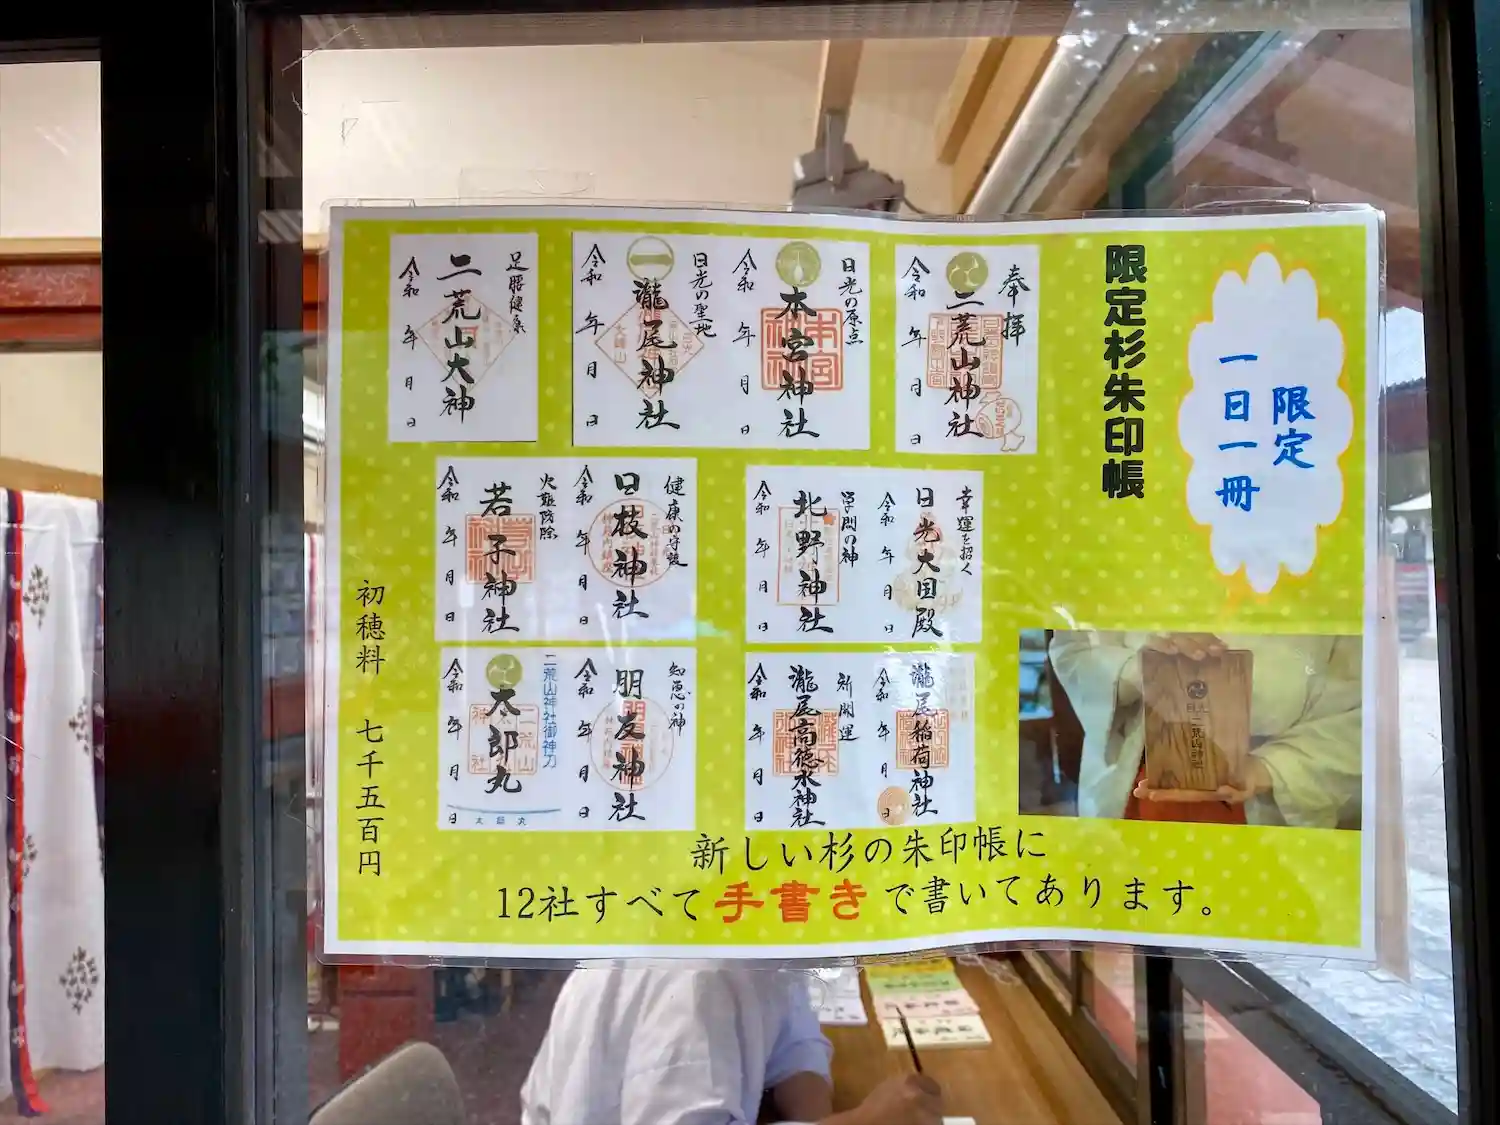 限定杉朱印帳
限定
一日一冊
奉拝
二荒山神社
令和 年 月 日
日光の原点
本宮神社
令和 年 月 日
日光の聖地
瀧尾神社
令和 年 月 日
足腰健康
二荒山大神
令和 年 月 日
幸運を招く
日光大国殿
令和 年 月 日
学問の神
北野神社
令和 年 月 日
健康の守護
日枝神社
令和 年 月 日
火難防除
若子神社
令和 年 月 日
瀧尾稲荷神社
令和 年 月 日
新開運
瀧尾高徳水神社
令和 年 月 日
知恵の神
朋友神社
令和 年 月 日
二荒山神社御神刀
太郎丸
令和 年 月 日
太郎丸
二荒山神社
初穂料 七千五百円
新しい杉の朱印帳に
12社すべて手書きで書いてあります。